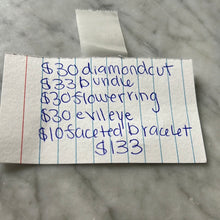 $30 diamondcut
$33 bundle
$30 flowerring
$30 evileye
$10 faceted bracelet
$133